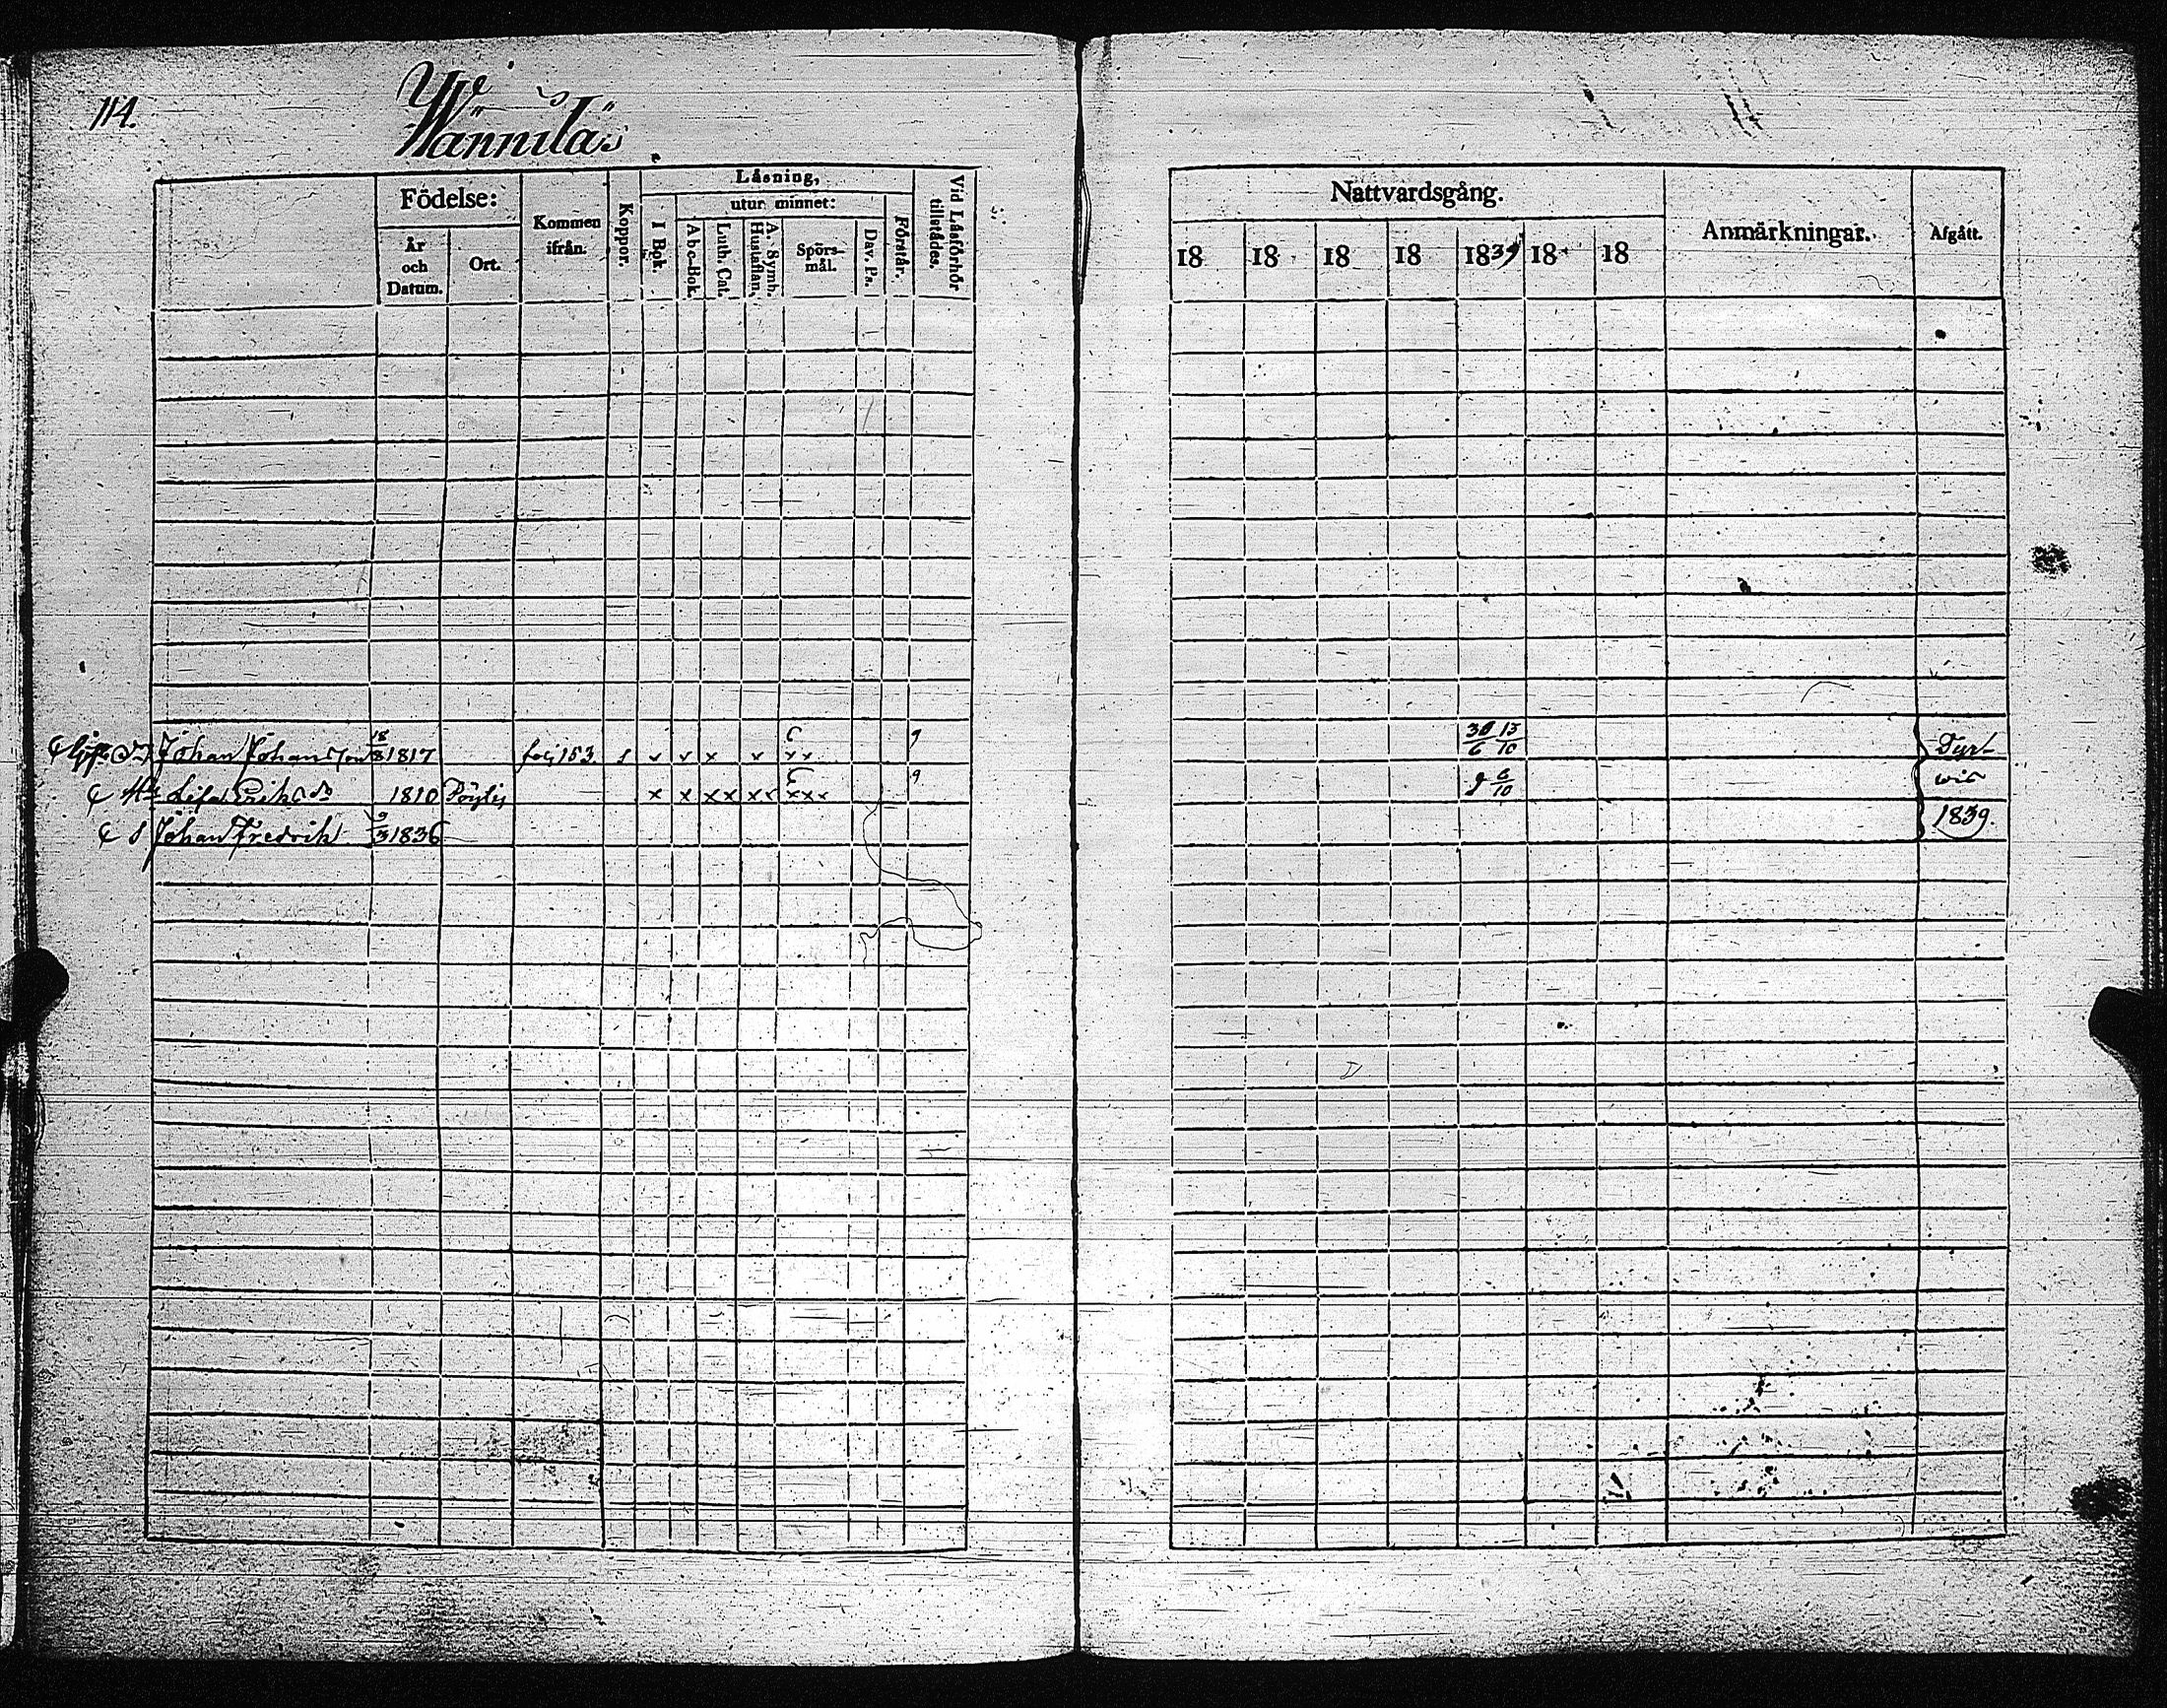 114.
Wännilä
Födelse:
År och Datum.
Ort.
Kommen ifrån.
Koppor.
Läsning,
I Bok.
utur minnet:
A b c-Bok.
Luth. Cat.
A. Symb. Hustaflan.
Spörsmål.
Dav. Ps.
Förstår.
Vid Läsförhör tillstädes.
Nattvardsgång.
18 18 18 18 1839 18 18
Anmärkningar.
Afgått.
Johan Johansson 18/8 1817 153 x x x x x x 9 30/6 13/10
Lisa Eriksdr 1810 Pöytis x x x x x x x x x 9 6/10
Johan Fredrik 9/3 1836
Tyrwis 1839.